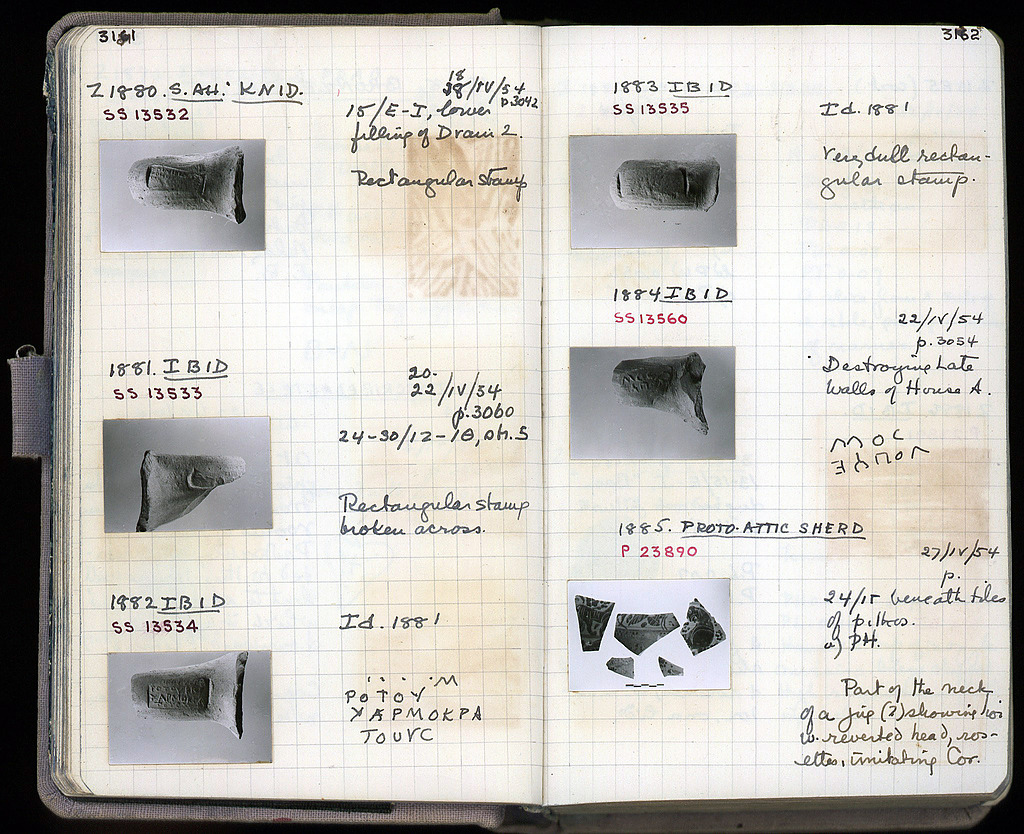 3161
Z 1880. S. AH. KNID.
SS 13532
18/IV/54
p.3042
15/E-I, lower
filling of Drain 2.
Rectangular stamp
1881. IBID
SS 13533
20-
22/IV/54
p.3060
24-30/12-1Θ, DM.5
Rectangular stamp
broken across.
1882 IBID
SS 13534
Id. 1881
. . . . M
ΡΟΤΟΥ
ΧΑΡΜΟΚΡΑ
ΤΟUVC
3162
1883 IBID
SS 13535
Id. 1881
Very dull rectan-
gular stamp.
1884 IBID
SS 13560
22/IV/54
p.3054
Destroying Late
Walls of House A.
1885. PROTO-ATTIC SHERD
P 23890
27/IV/54
p.
24/ beneath tiles
of pithos.
a) PH.
Part of the neck
of a jug (?) showing
w. reverted head, ros-
ettes, imitating Cor.